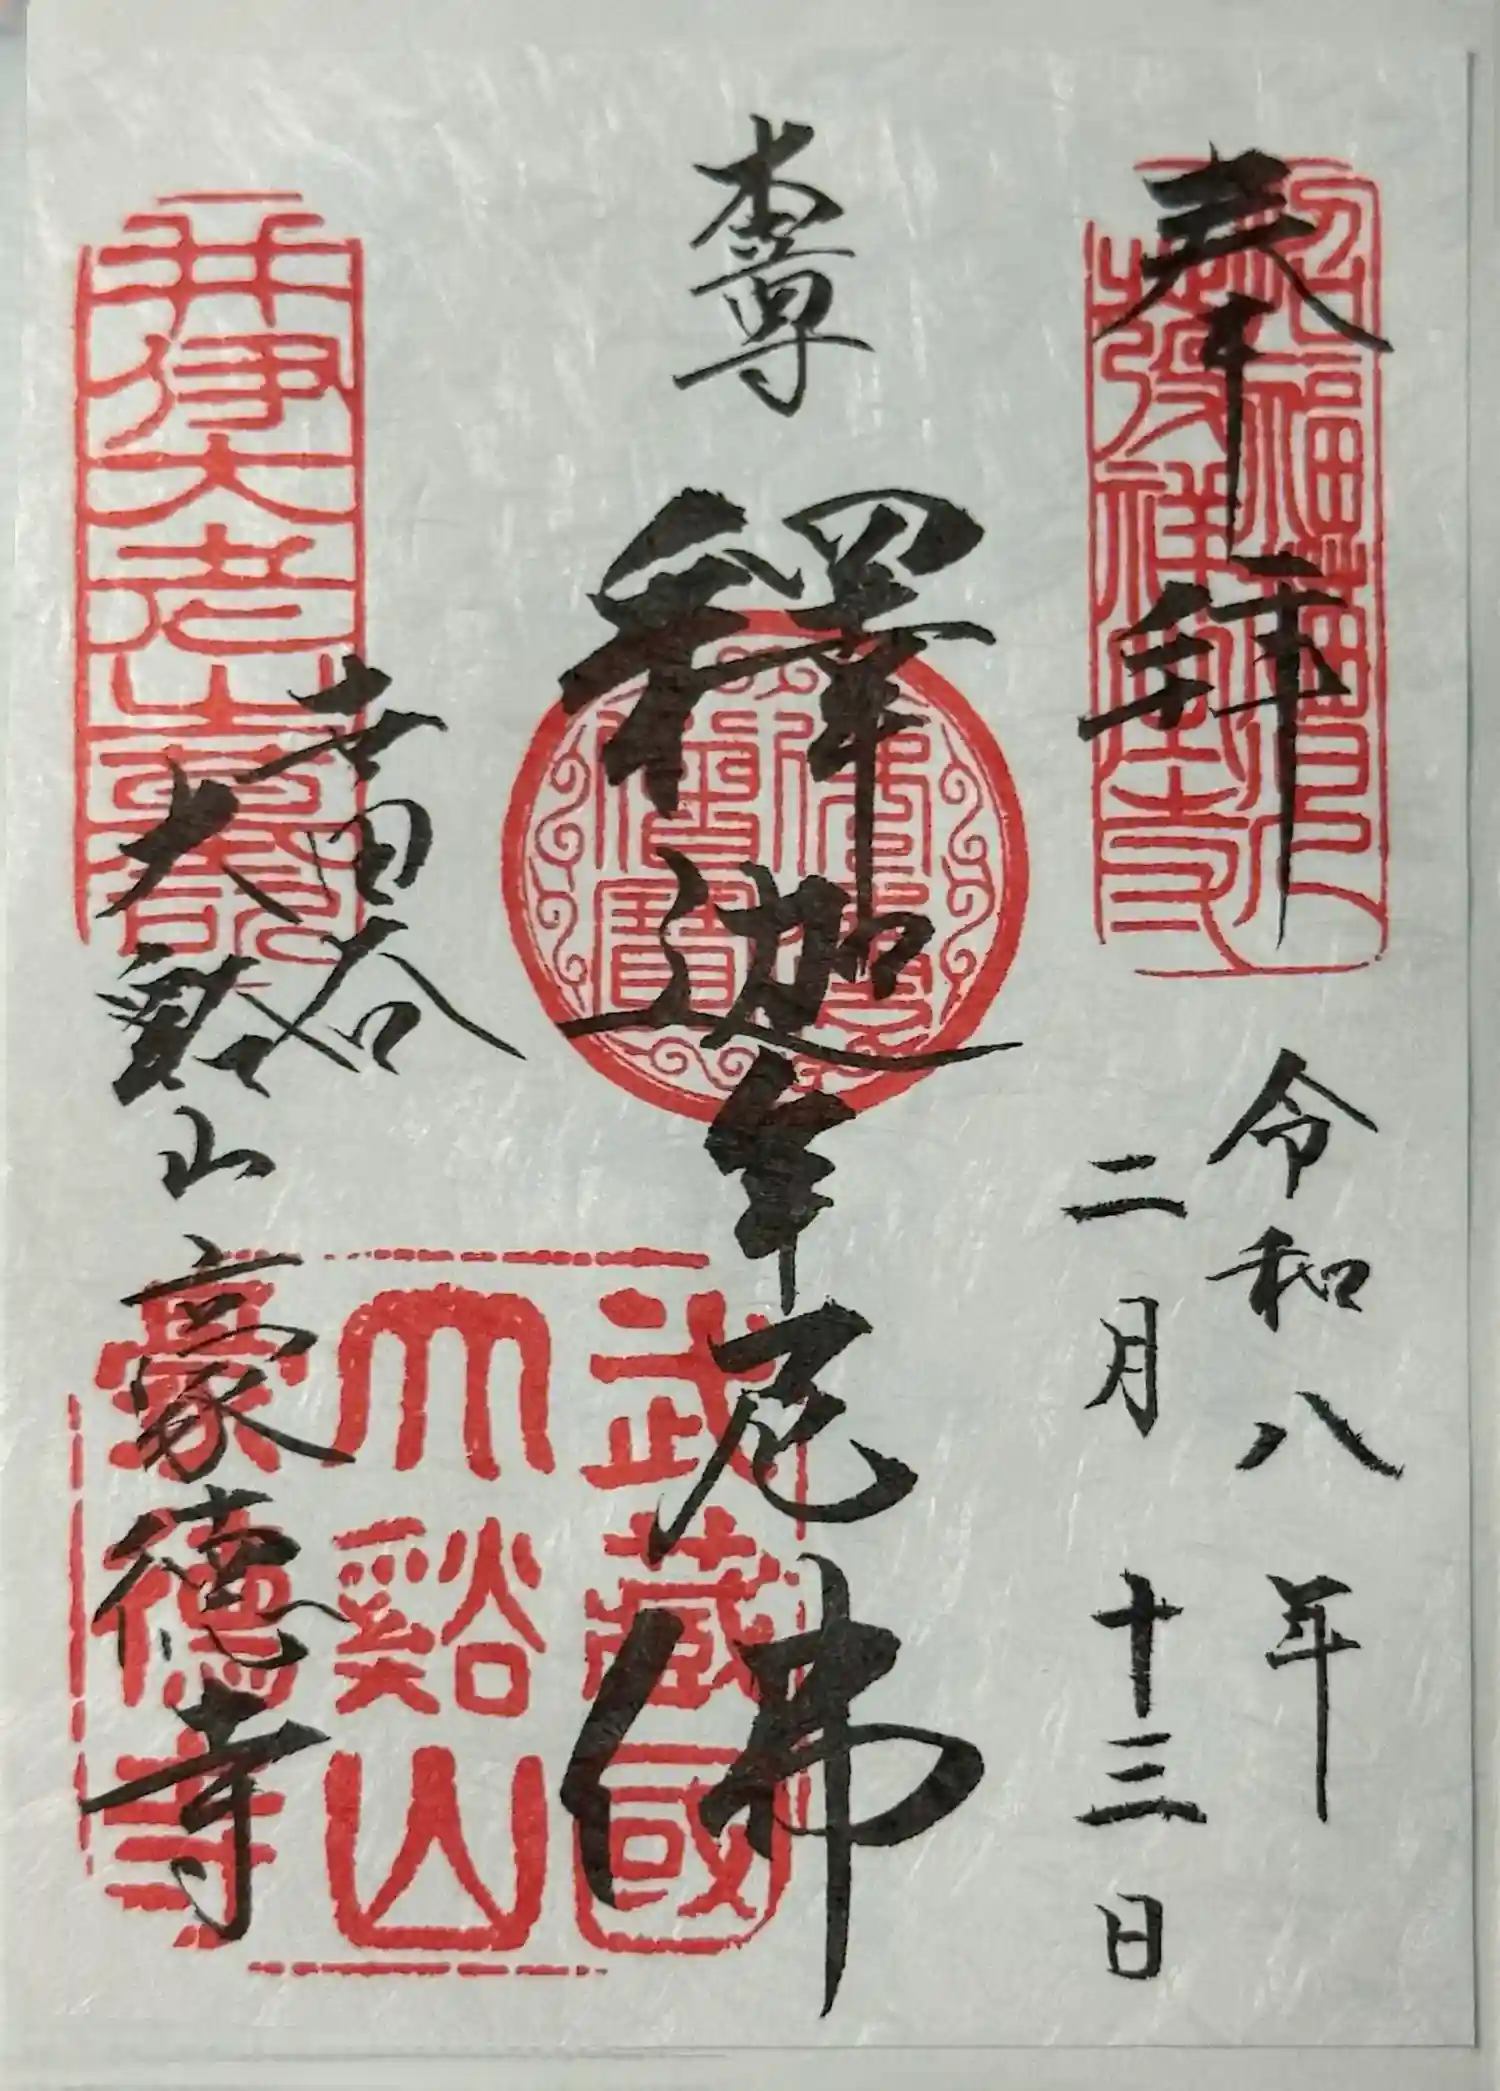 奉拜
令和八年
二月十三日
本尊
釋迦牟尼佛
世田谷
大谿山豪德寺
招福猫兒
發祥之寺
佛法
僧寶
武藏國
大谿山
豪德寺
井伊大老